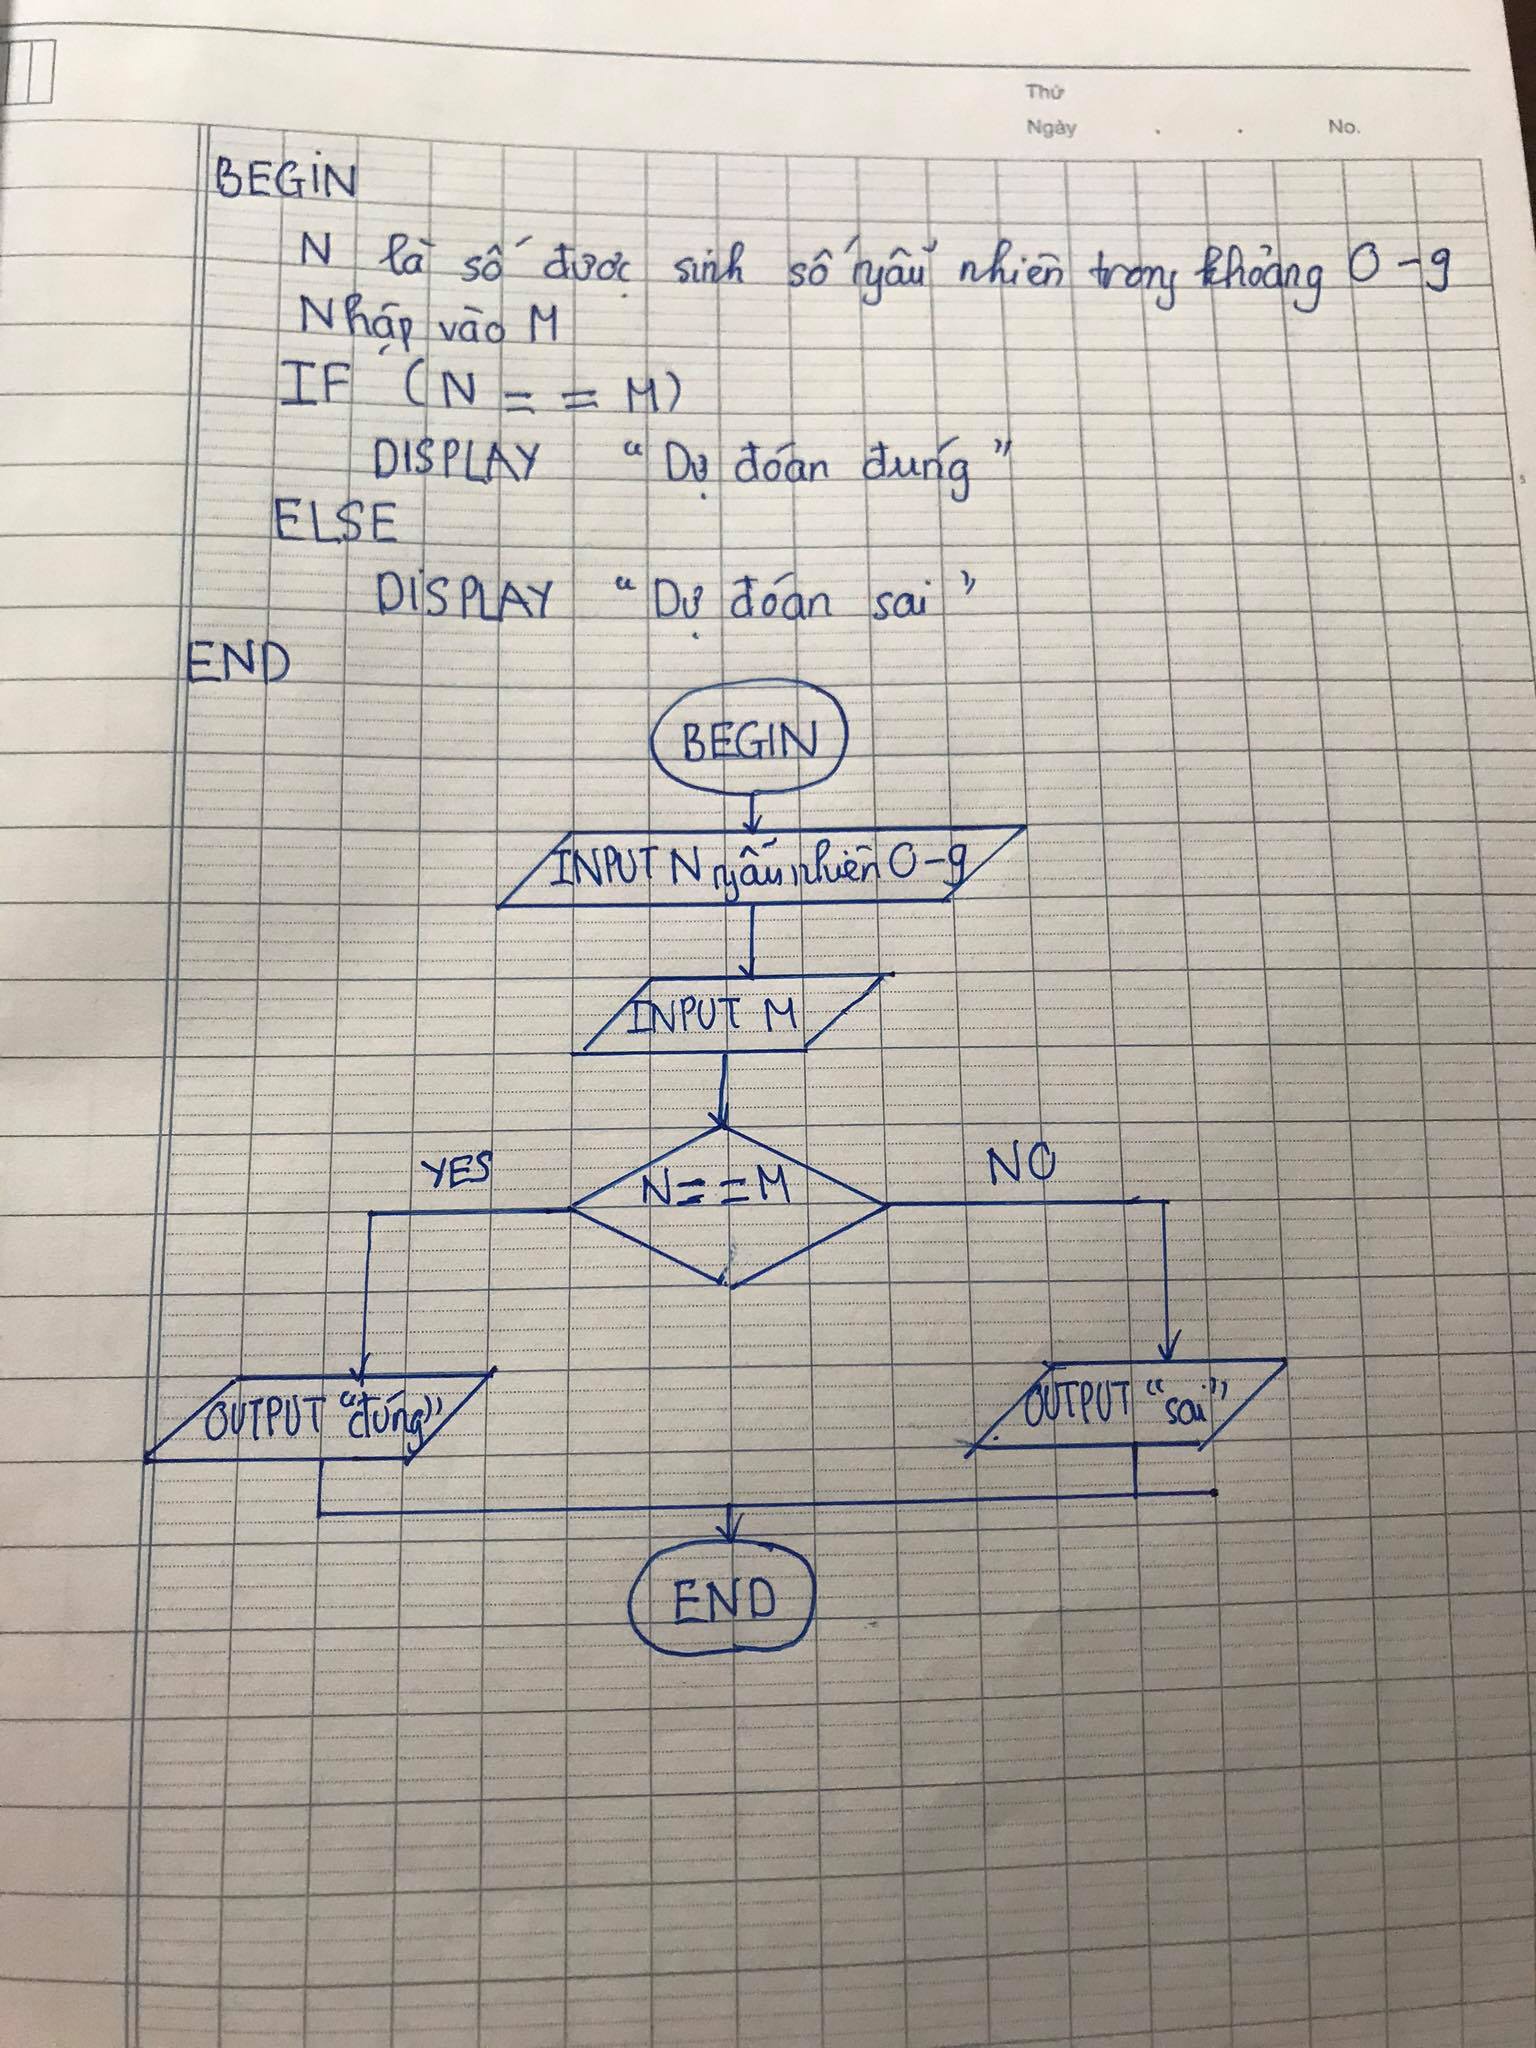 Thứ
Ngày . . No.
BEGIN
N là số được sinh số ngẫu nhiên trong khoảng 0-9
Nhập vào M
IF (N == M)
DISPLAY "Dự đoán đúng"
ELSE
DISPLAY "Dự đoán sai"
END
BEGIN
INPUT N ngẫu nhiên 0-9
INPUT M
YES
N==M
NO
OUTPUT "đúng"
OUTPUT "sai"
END